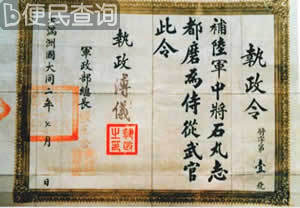 便民查询
執政令
第壹號
補陸軍中將石丸志
都磨為侍從武官
此令
執政 溥儀
軍政部總長
滿洲國大同二年 月 日